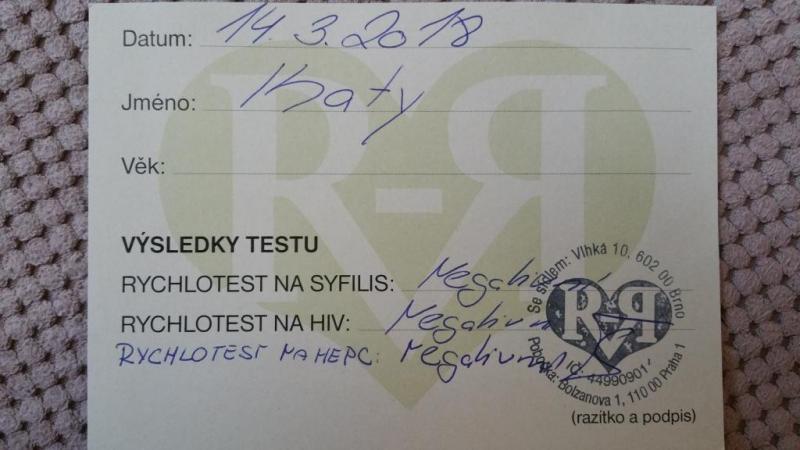 Datum: 14.3.2018
Jméno: Katy
Věk:
R-Я
VÝSLEDKY TESTU
RYCHLOTEST NA SYFILIS: Negativní
RYCHLOTEST NA HIV: Negativní
RYCHLOTEST NA HEPC: Negativní
Se sídlem: Vlhká 10, 602 00 Brno
R-Я
IČ: 44990901
Pobočka: Bolzanova 1, 110 00 Praha 1
(razítko a podpis)